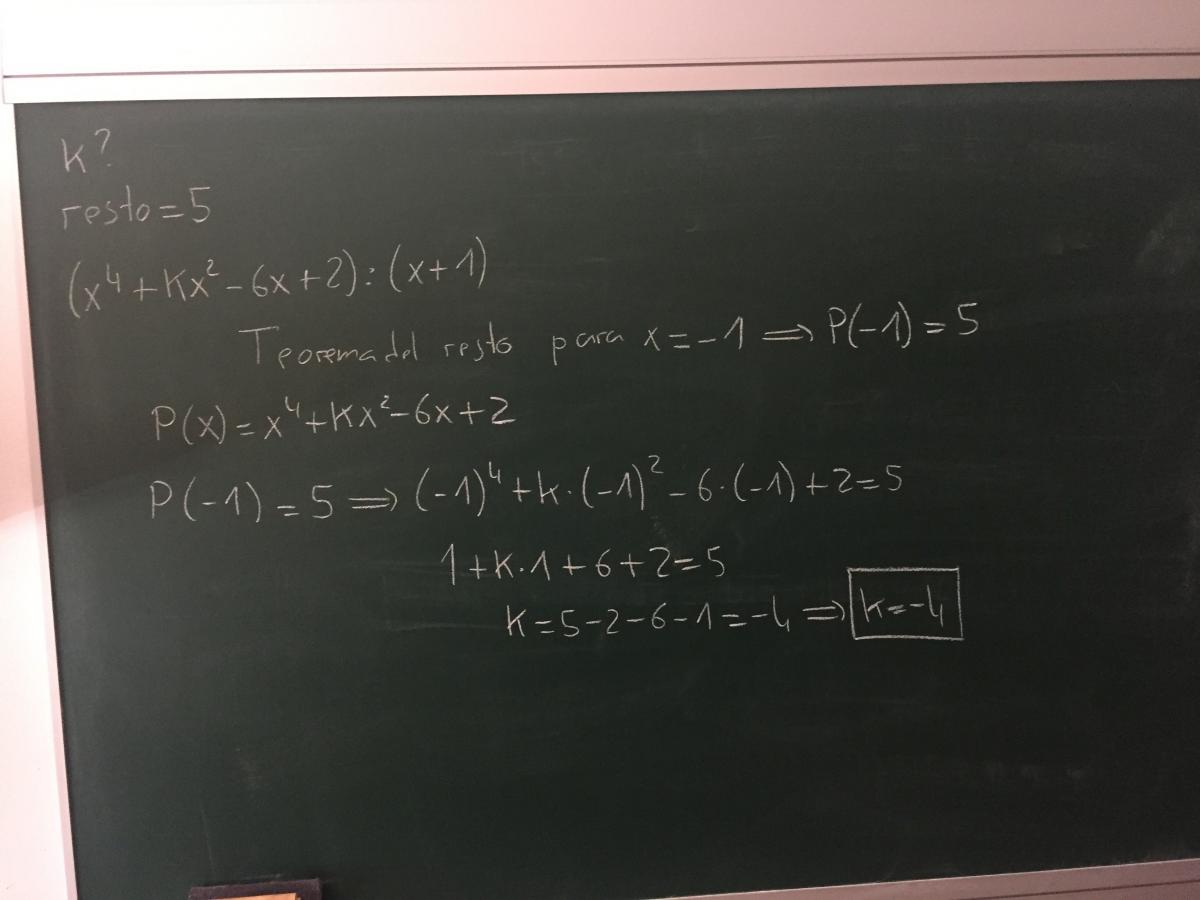 k?
resto=5
(x⁴+Kx²-6x+2):(x+1)
Teorema del resto para x=-1 ⟹ P(-1)=5
P(x)=x⁴+Kx²-6x+2
P(-1)=5 ⟹ (-1)⁴+k·(-1)²-6·(-1)+2=5
1+K·1+6+2=5
K=5-2-6-1=-4 ⟹ k=-4